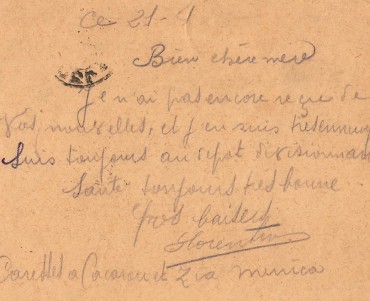 Ce 21-1
Bien chère mere
Je n'ai pas encore reçu de
Vos nouvelles, et j'en suis très ennuy
Suis toujours au depot divisionnair
Santé toujours très bonne
Gros baisers
Florentin
Caresses a et Zia